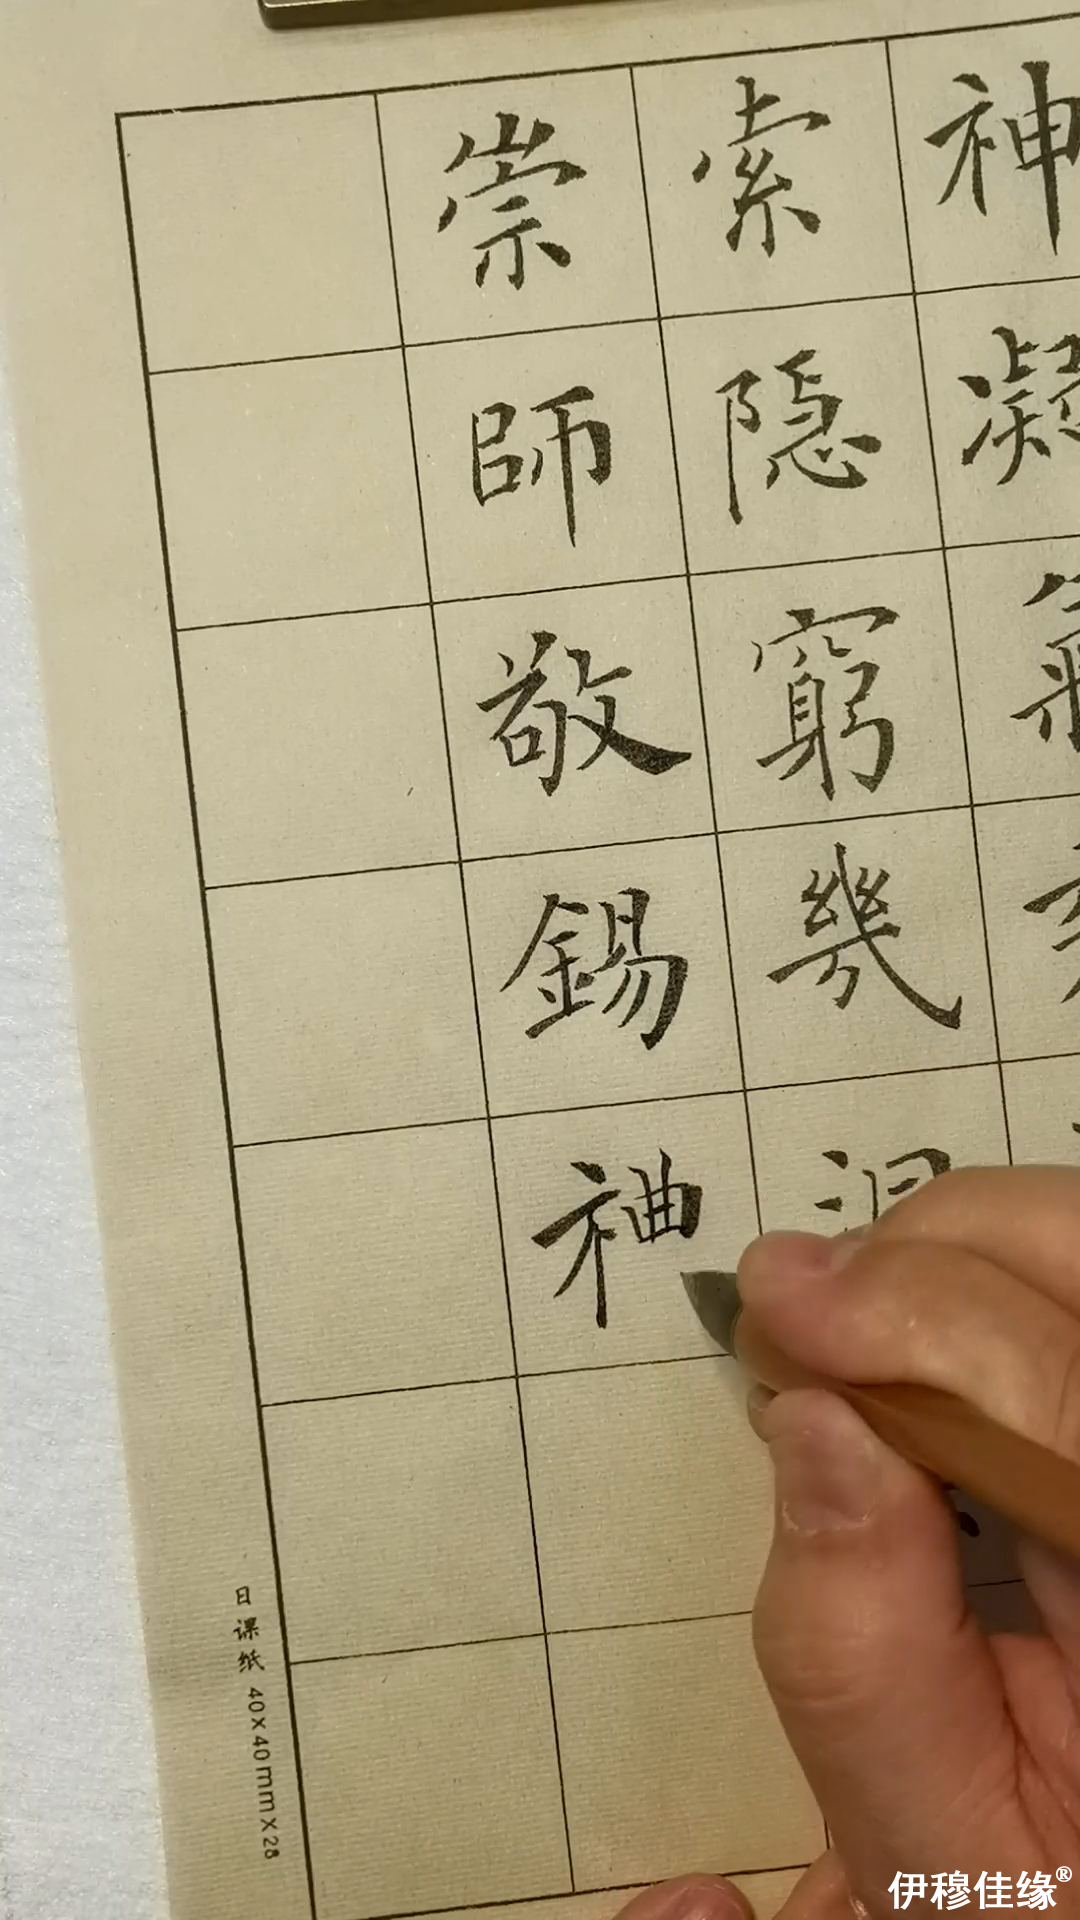 神凝氣
索隐窮幾
崇師敬錫
日课纸 40X40mmX28
伊穆佳缘®